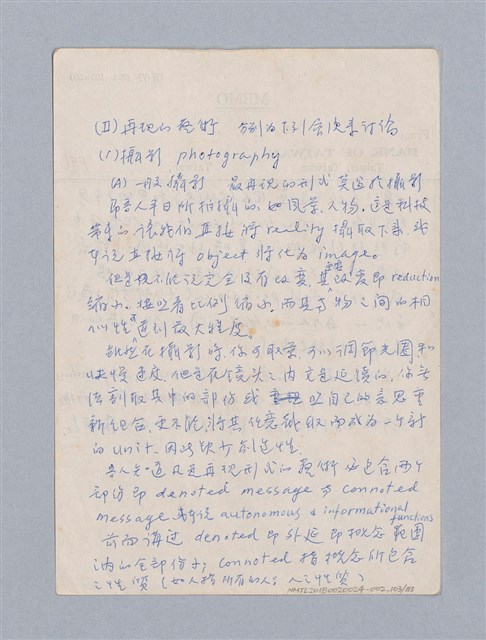 (II) 再現的藝術 分別為下列層次來討論
(1) 攝影 photography
(A) 一般攝影 最再現的形式莫過於攝影
即吾人平日所拍攝的,如風景、人物,這是科技
帶來的,讓我們直接將reality攝取下來,或
者說直接將object轉化為image。
但是我不能說完全沒有改變,其主要改變即reduction
縮小,接照着比例縮小,而其與物之間的相
似性達到最大程度。
雖然在攝影時,你可取景,可以調節光圈和
快慢速度,但是在鏡头之內是延續的,你無
法割取其中的部份或 以自己的意思重
新組合,更不能將其任意截取而成為一个新
的unit.因此缺少創造性。
吾人知道凡是再現形式的藝術必包含兩个
部份即denoted message 与 connoted
message 或者說 autonomous & informational functions
前面講过 denoted 即外延即概念範圍
內的全部份子; connoted 指概念所包含
之性質 (如人指所有的人; 人之性質)
NMTL20180020024-002_103/113